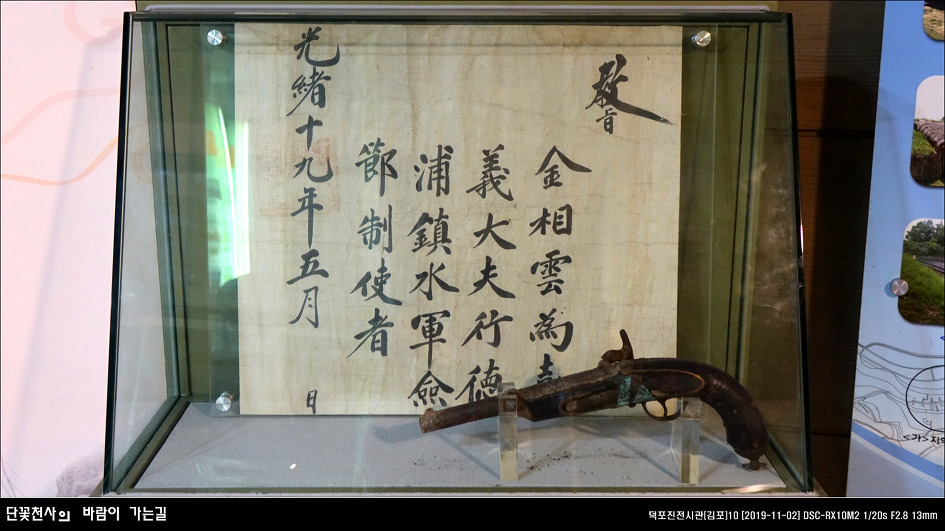 敎旨
金相雲為嘉
義大夫行德
浦鎮水軍僉
節制使者
光緒十九年五月 日
단꽃천사의 바람이 가는길
덕포진전시관[김포]10 [2019-11-02] DSC-RX10M2 1/20s F2.8 13mm